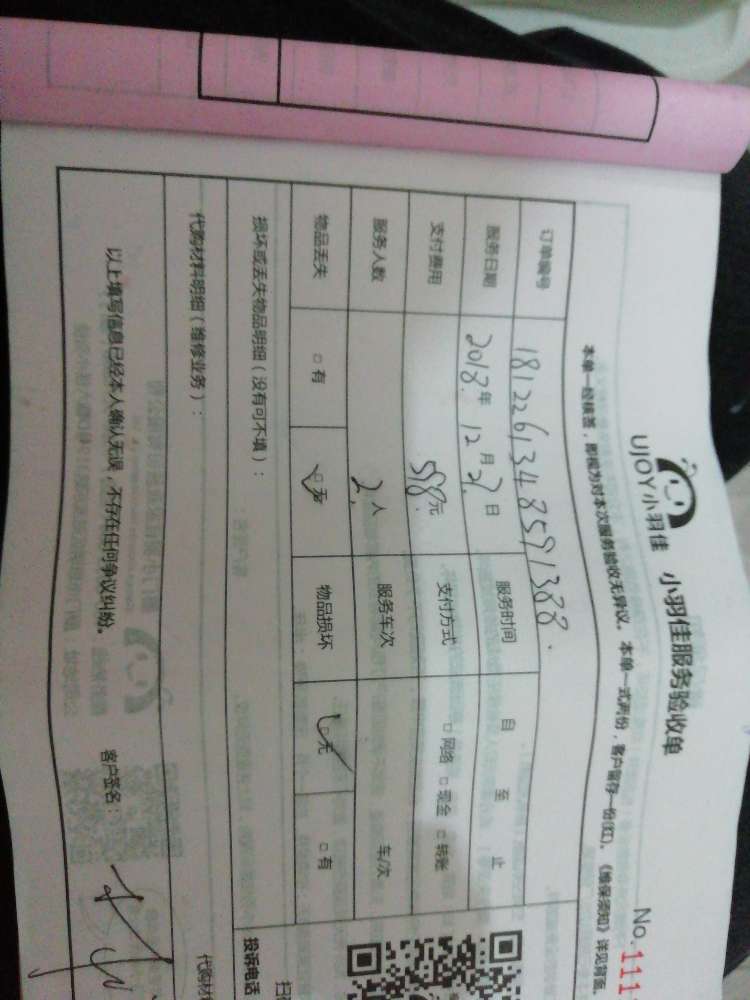 UJOY小羽佳 小羽佳服务验收单 No.111
本单一经核签，即视为对本次服务验收无异议。本单一式两份，客户留存一份(红)。《维保须知》详见背面。
订单编号 1812261348591388.
服务日期 2018.年 12月 日 服务时间 自 至 止
支付费用 598.元 支付方式 □网络 □现金 □转账
服务人数 2.人 服务车次 车/次
物品丢失 □有 □无 物品损坏 □无 □有
损坏或丢失物品明细（没有可不填）：
代购材料明细（维修业务）： 代购材
以上填写信息已经本人确认无误，不存在任何争议纠纷。 客户签名：
投诉电话